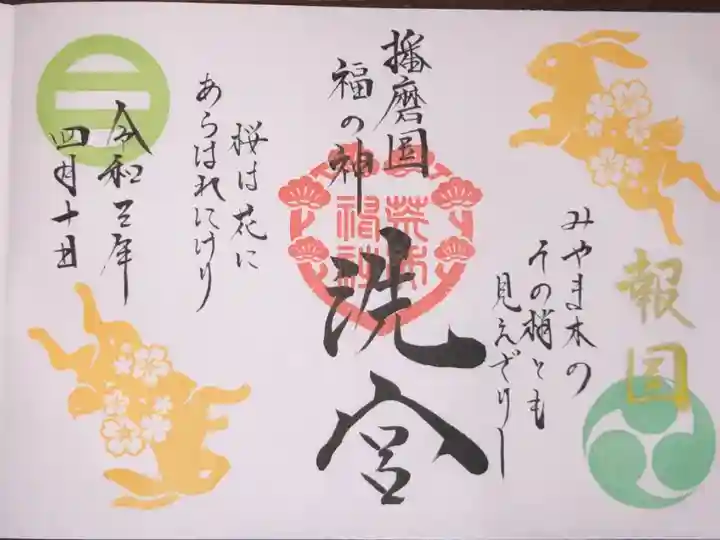 報国
みやま木の
その梢とも
見えざりし
播磨国
福の神
洗宮
荒井
神社
桜は花に
あらはれにけり
令和三年
四月十日